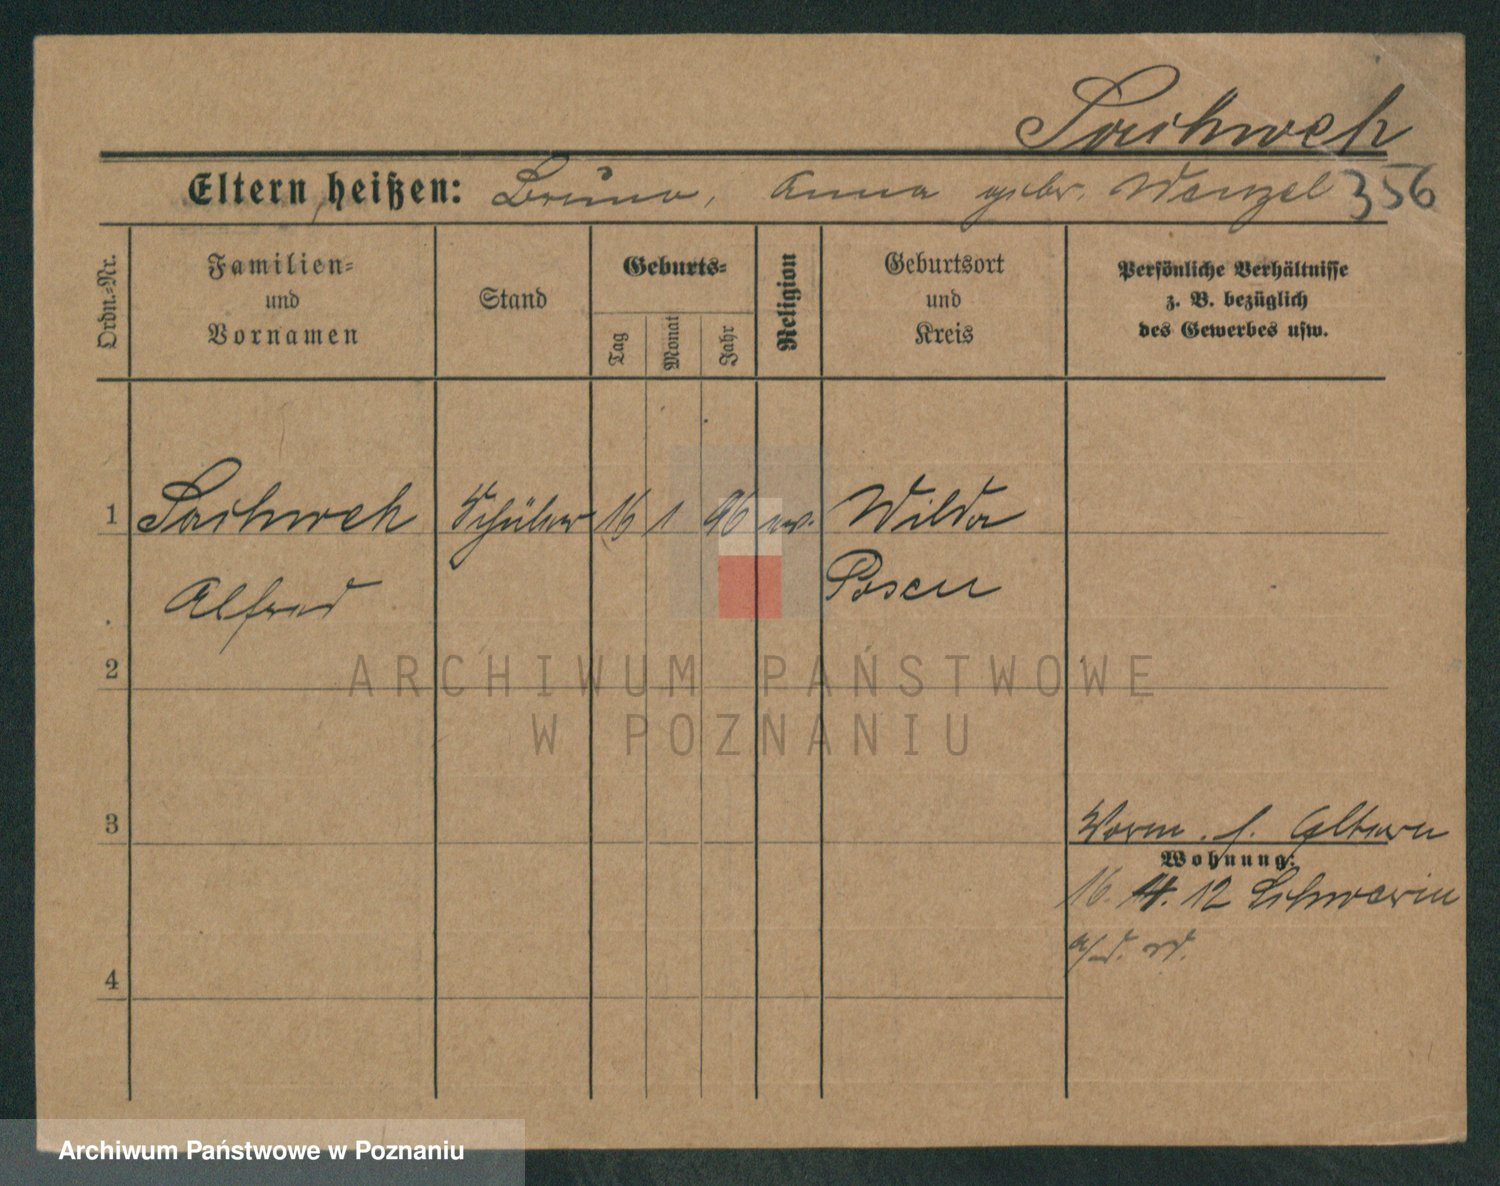 Sachweh
Eltern heißen: Bruno, Anna geber. Wenzel 356
Ordn.-Nr.
Familien-
und
Vornamen
Stand
Geburts-
Tag
Monat
Jahr
Religion
Geburtsort
und
Kreis
Persönliche Verhältnisse
z. B. bezüglich
des Gewerbes usw.
1 Sachweh Schüler 16 1 96 ev. Wilda
Alfred Posen
2
3
Vorm. s. Eltern
Wohnung:
16. 4. 12 Schwerin
4
ARCHIWUM PAŃSTWOWE
W POZNANIU
Archiwum Państwowe w Poznaniu